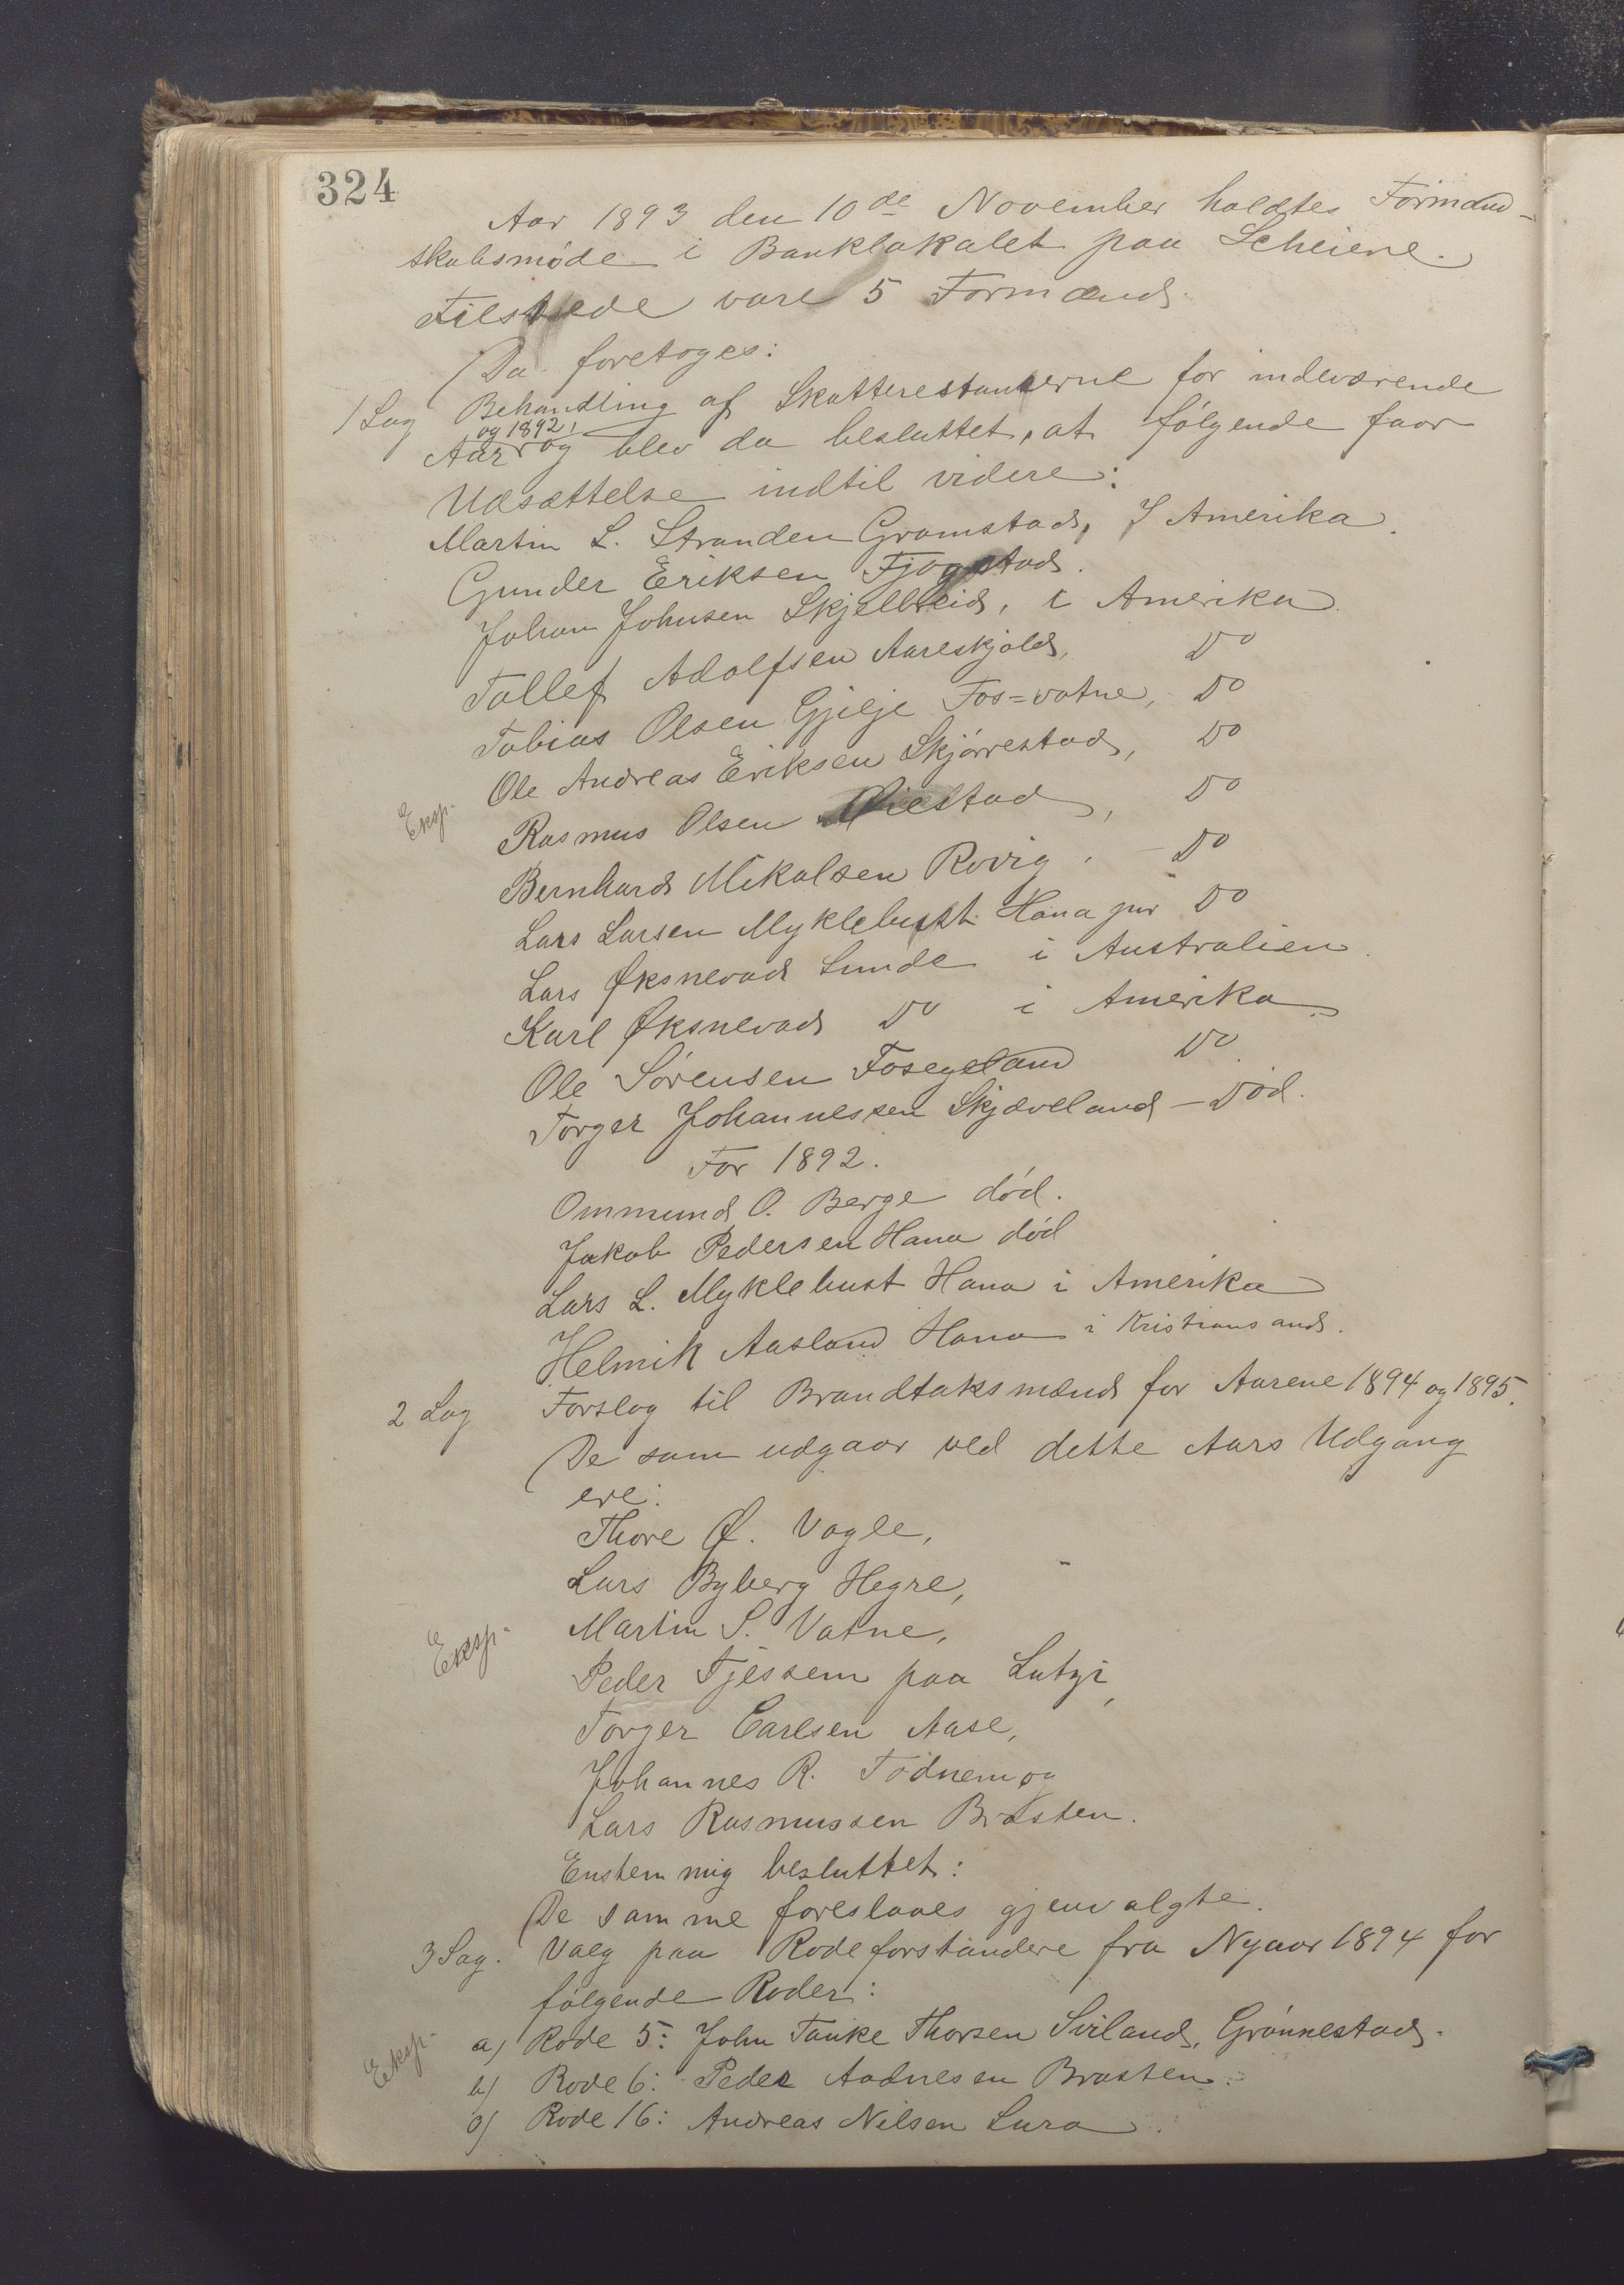 324
Aar 1893 den 10de November holdtes Formand-
skabsmøde i Banklokalet paa Scheiene.
Tilstede vare 5 Formænd.
Da foretoges:
1 Sag Behandling af Skatterestanserne for indeværende
og 1892,
Aar og blev da besluttet, at følgende faar
Udsættelse indtil videre:
Martin L. Stranden Gramstad, I Amerika.
Gunder Eriksen Fjogstad.
Johan Johnsen Skjelbreid, i Amerika.
Tollef Adolfsen Aareskjold, Do
Tobias Olsen Gjilje Fos=vatne, Do
Ole Andreas Eriksen Skjørrestad, Do
Eksp. Rasmus Olsen Øiestad, Do
Bernhard Mikalsen Rovig, - Do
Lars Larsen Myklebust Hana jur Do
Lars Øksnevad Lunde i Australien.
Karl Øksnevad Do i Amerika.
Ole Sørensen Fosegeland Do.
Torger Johannessen Skjæveland - Død.
For 1892.
Ommund O. Berge død.
Jakob Pedersen Hana død
Lars L. Myklebust Hana i Amerika
Helmik Aasland Hana i Kristiansand.
2 Sag Forslag til Brandtaksmænd for Aarene 1894 og 1895.
De som udgaar ved dette Aars Udgang
ere:
Thore Ø. Vagle,
Lars Byberg Hegre,
Eksp. Martin S. Vatne,
Peder Tjessem paa Lutzi,
Torger Carlsen Aase,
Johannes R. Tødnem og
Lars Rasmussen Bråsten.
Enstemmig besluttet:
De samme foreslaaes gjenvalgte.
3 Sag. Valg paa Rodeforstandere fra Nyaar 1894 for
følgende Roder:
Eksp. a) Rode 5: John Tanke Thorsen Sviland, Grønnestad.
b) Rode 6: Peder Aadnesen Brasten.
c) Rode 16: Andreas Nilsen Lura.